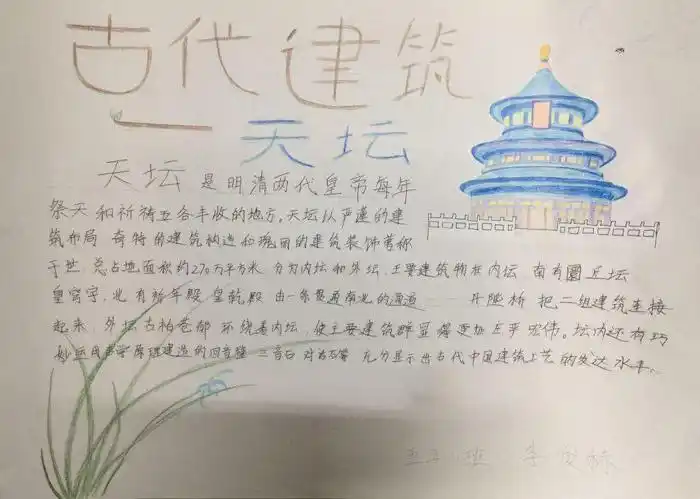 古代建筑
一天坛
天坛是明清两代皇帝每年
祭天和祈祷五谷丰收的地方。天坛以严谨的建
筑布局 奇特的建筑构造和瑰丽的建筑装饰著称
于世.总占地面积约270万平方米 分为内坛和外坛.主要建筑物在内坛 南有圜丘坛
皇穹宇.北有祈年殿 皇乾殿 由一条贯通南北的通道——丹陛桥 把二组建筑连接
起来.外坛古柏苍郁 环绕着内坛.使主要建筑群显得更加庄严宏伟。坛内还有巧
妙运用声学原理建造的回音壁 三音石 对话石等 充分显示出古代中国建筑工艺的发达水平。
班 李